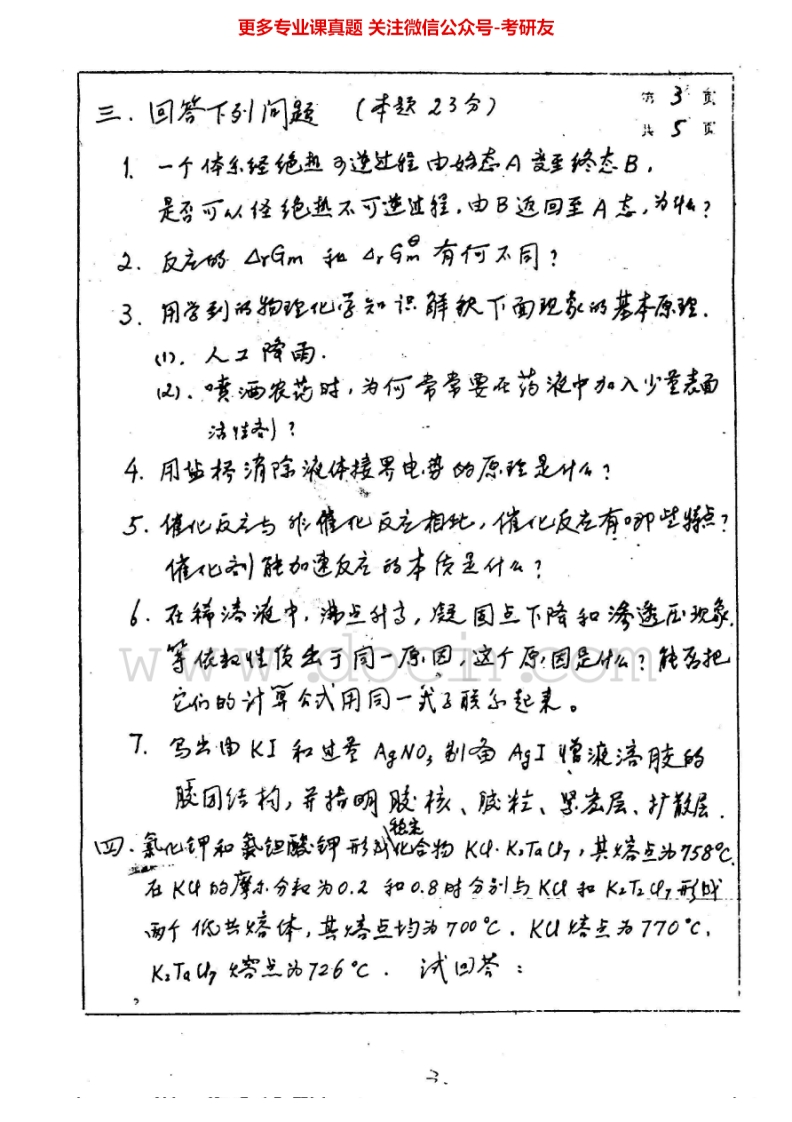 更多专业课真题 关注微信公众号-考研友
第 3 页
共 5 页
三. 回答下列问题 (本题23分)
1. 一个体系经绝热可逆过程由始态A变至终态B,
是否可以经绝热不可逆过程,由B返回至A态,为什么?
2. 反应的 ΔrGm 和 ΔrGm^θ 有何不同?
3. 用学到的物理化学知识解释下面现象的基本原理.
(1). 人工降雨.
(2). 喷洒农药时,为何常常要在药液中加入少量表面
活性剂?
4. 用盐桥消除液体接界电势的原理是什么?
5. 催化反应与非催化反应相比,催化反应有哪些特点?
催化剂能加速反应的本质是什么?
6. 在稀溶液中,沸点升高,凝固点下降和渗透压现象
等依数性质出于同一原因,这个原因是什么?能否把
它们的计算公式用同一式子联系起来。
7. 写出由 KI 和过量 AgNO₃ 制备 AgI 憎液溶胶的
胶团结构,并指明胶核、胶粒、紧密层、扩散层.
四. 氯化钾和氯钽酸钾形成稳定化合物 KCl·K₂TaCl₇,其熔点为758°C.
在 KCl 的摩尔分数为0.2 和0.8时分别与 KCl 和 K₂TaCl₇ 形成
两个低共熔体,其熔点均为700°C. KCl 熔点为770°C,
K₂TaCl₇ 熔点为726°C. 试回答:
3.
www.docin.com